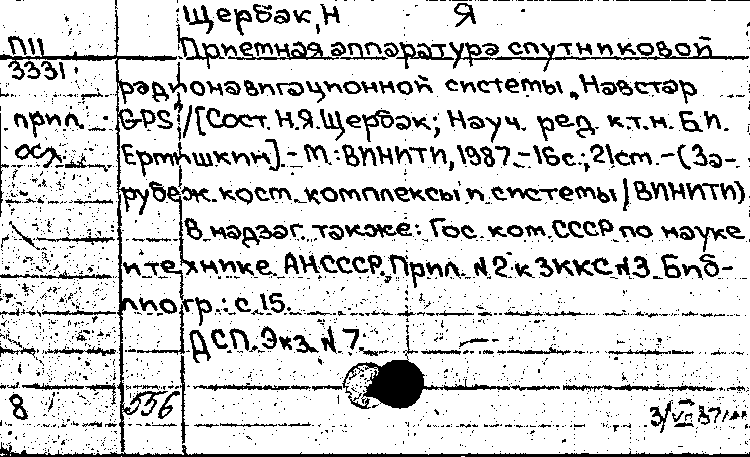 Щербак, Н Я
П11 Приемная аппаратура спутниковой
3331 радионавигационной системы „Навстар
прил. GPS"/[Сост. Н.Я.Щербак; Науч. ред. к.т.н. Б.И.
Ермишкин]. - М.: ВИНИТИ, 1987. - 16 с.; 21 см. - (За-
рубеж. косм. комплексы и системы / ВИНИТИ)
В надзаг. также: Гос. ком. СССР по науке
и технике АН СССР. Прил. N 2 к ЗККС N 3. Биб-
лиогр.: с. 15.
ДСП. Экз. N 7.
8 556